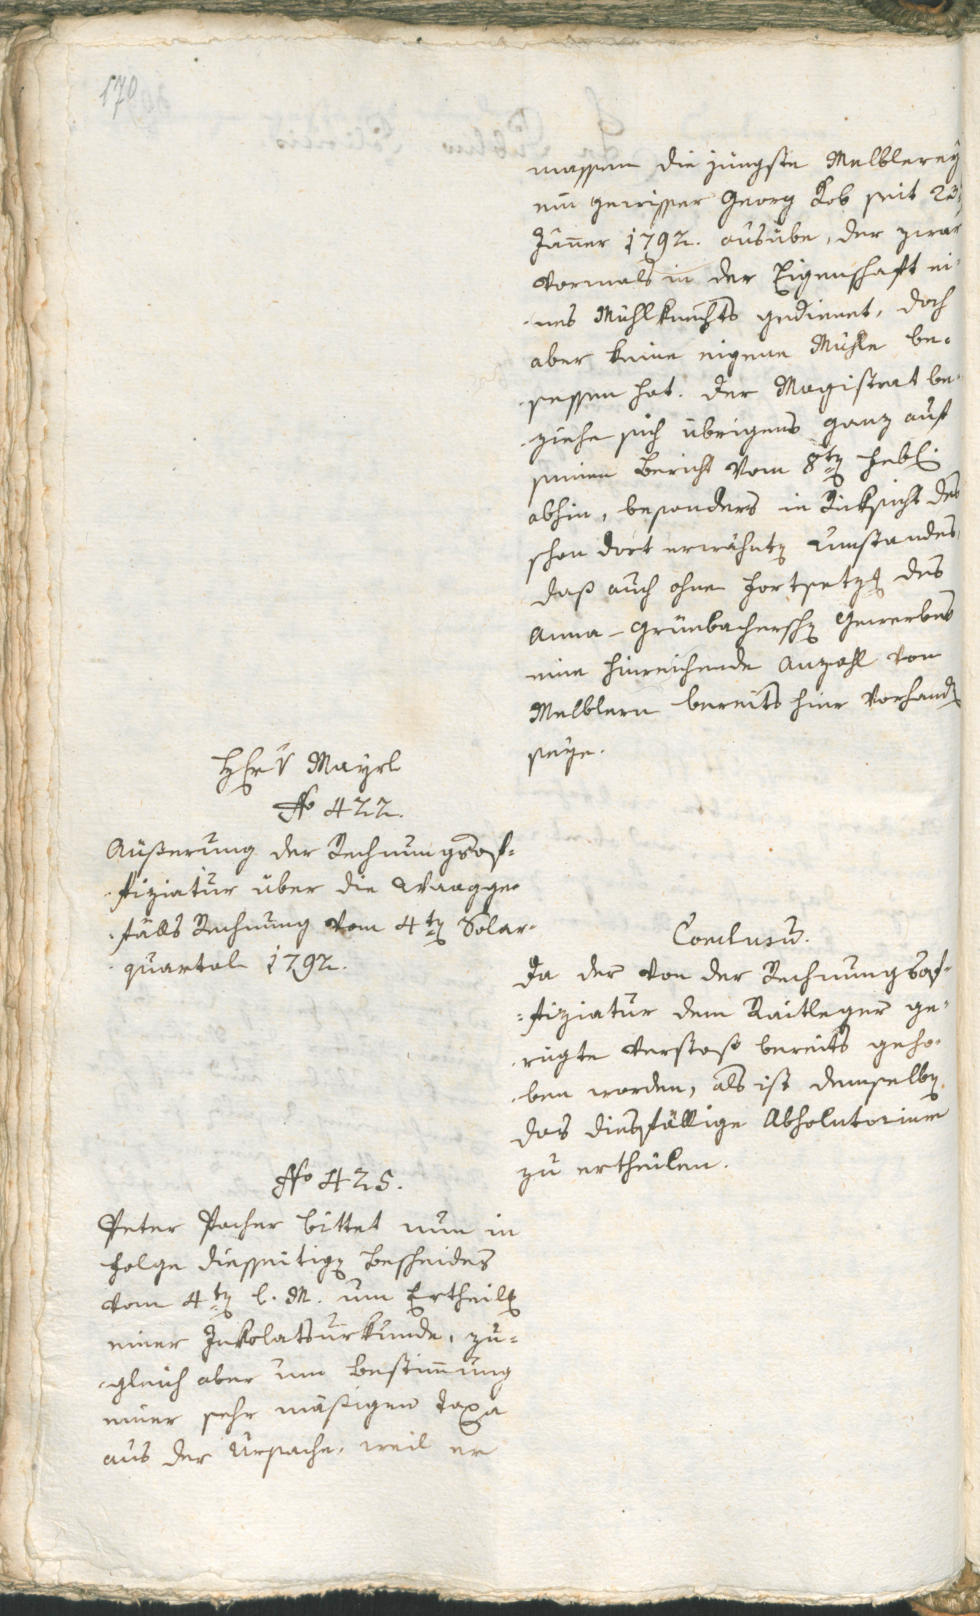 170
massen die jüngste Melblerey
ein gewisser Georg Kob seit 23
Jäner 1792. ausübe, der zwar
vormals in der Eigenschaft ei-
nes Mühlknechts gedienet, doch
aber keine eigene Mühle be-
sessen hat. Der Magistrat be-
ziehe sich übrigens ganz auf
seinen Bericht vom 8ten Febl.
abhin, besonders in Rücksicht des
schon dort erwähnten Umstandes,
daß auch ohne Fortsetzg des
Anna-Grünbacherschen Gewerbes
eine hinreichende Anzahl von
Melblern bereits hier vorhanden
seye.
H. Mayrl
No 422.
Äußerung der Rechnungsof-
fiziatur über die Waagge-
fälls Rechnung vom 4ten Solar-
quartal 1792.
Conclusum.
Da der von der Rechnungsof-
fiziatur dem Raitleger ge-
rügte Verstoß bereits geho-
ben worden, als ist demselben
das diesfällige Absolutorium
zu ertheilen.
No 425.
Peter Pacher bittet nun in
Folge diesseitigen Bescheides
vom 4ten l. M. um Ertheilg
einer Inkolatsurkunde, zu-
gleich aber um Bestimmung
einer sehr mäßigen Taxa
aus der Ursache, weil er